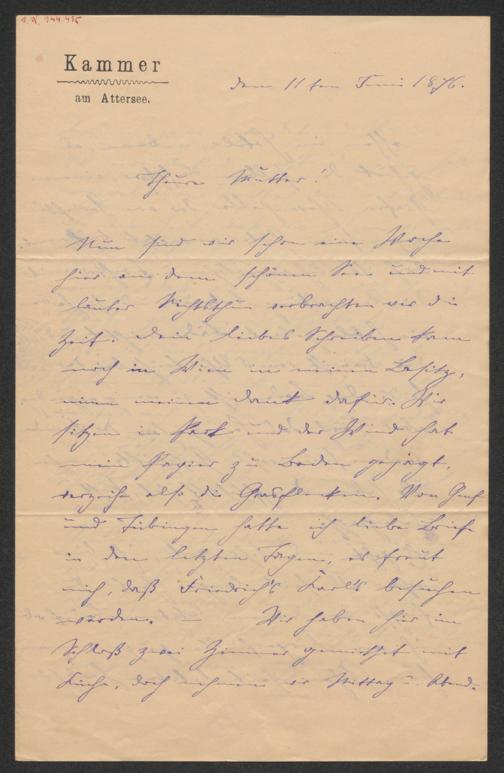 I.N. 144.415
Kammer
am Attersee.
den 11ten Juni 1876.
Theure Mutter!
Nun sind wir schon eine Woche
hier an dem schönen See und mit
lauter Nichtsthun verbrachten wir die
Zeit. Dein liebes Schreiben kam
noch in Wien in meinen Besitz,
nimm meinen Dank dafür. Wir
sitzen im Park und der Wind hat
mein Papier zu Boden gejagt,
verzeihe also die Grasflecken. Von Genf
und Tübingen hatte ich liebe Briefe
in den letzten Tagen, es freut
mich, daß Friedrich's Karl's besuchen
werden. — Wir haben hier im
Schloß zwei Zimmer gemiethet mit
Küche, doch nehmen wir Mittag- u. Abend-